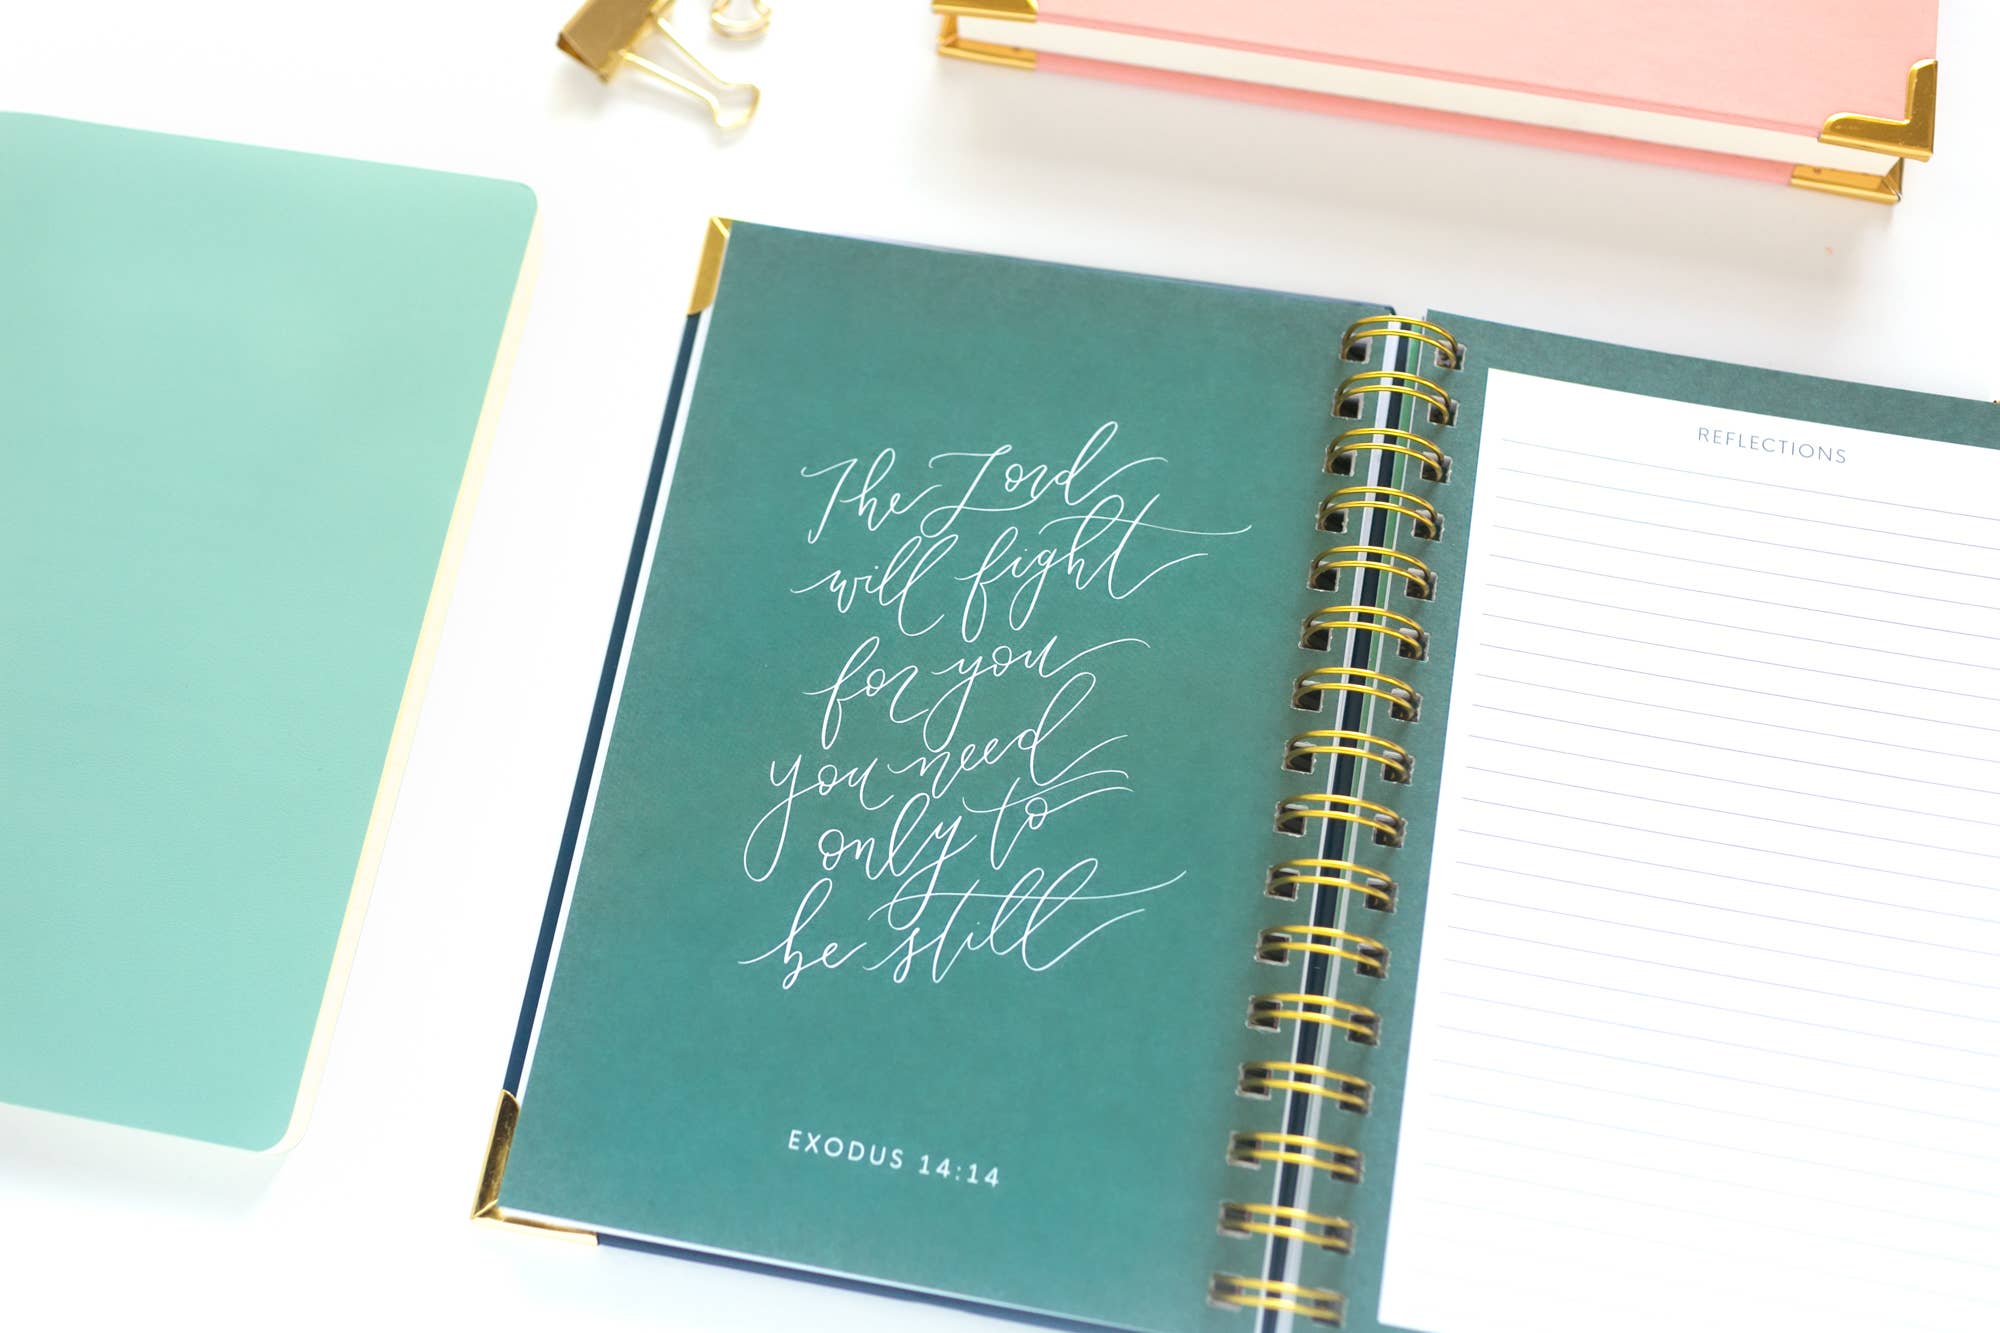 The Lord
will fight
for you
you need
only to
be still
EXODUS 14:14
REFLECTIONS